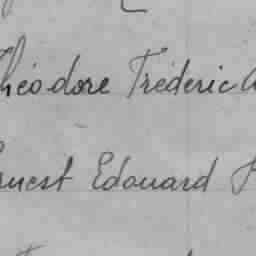 Théodore Fréderic
Ernest Edouard